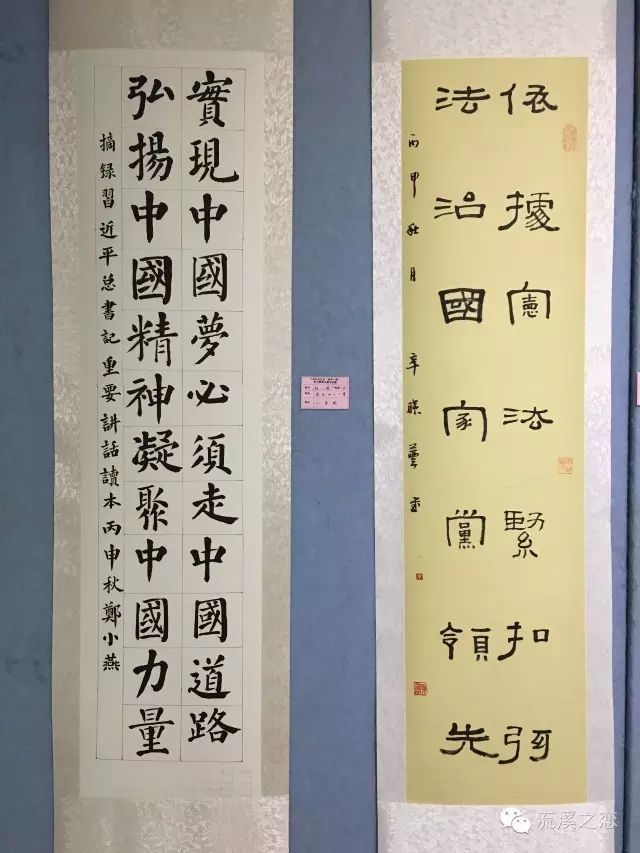 實現中國夢必須走中國道路
弘揚中國精神凝聚中國力量
摘録習近平总書記重要講話讀本丙申秋鄭小燕
依據憲法緊扣弦
法治國家黨領先
丙申秋月
流溪之恋